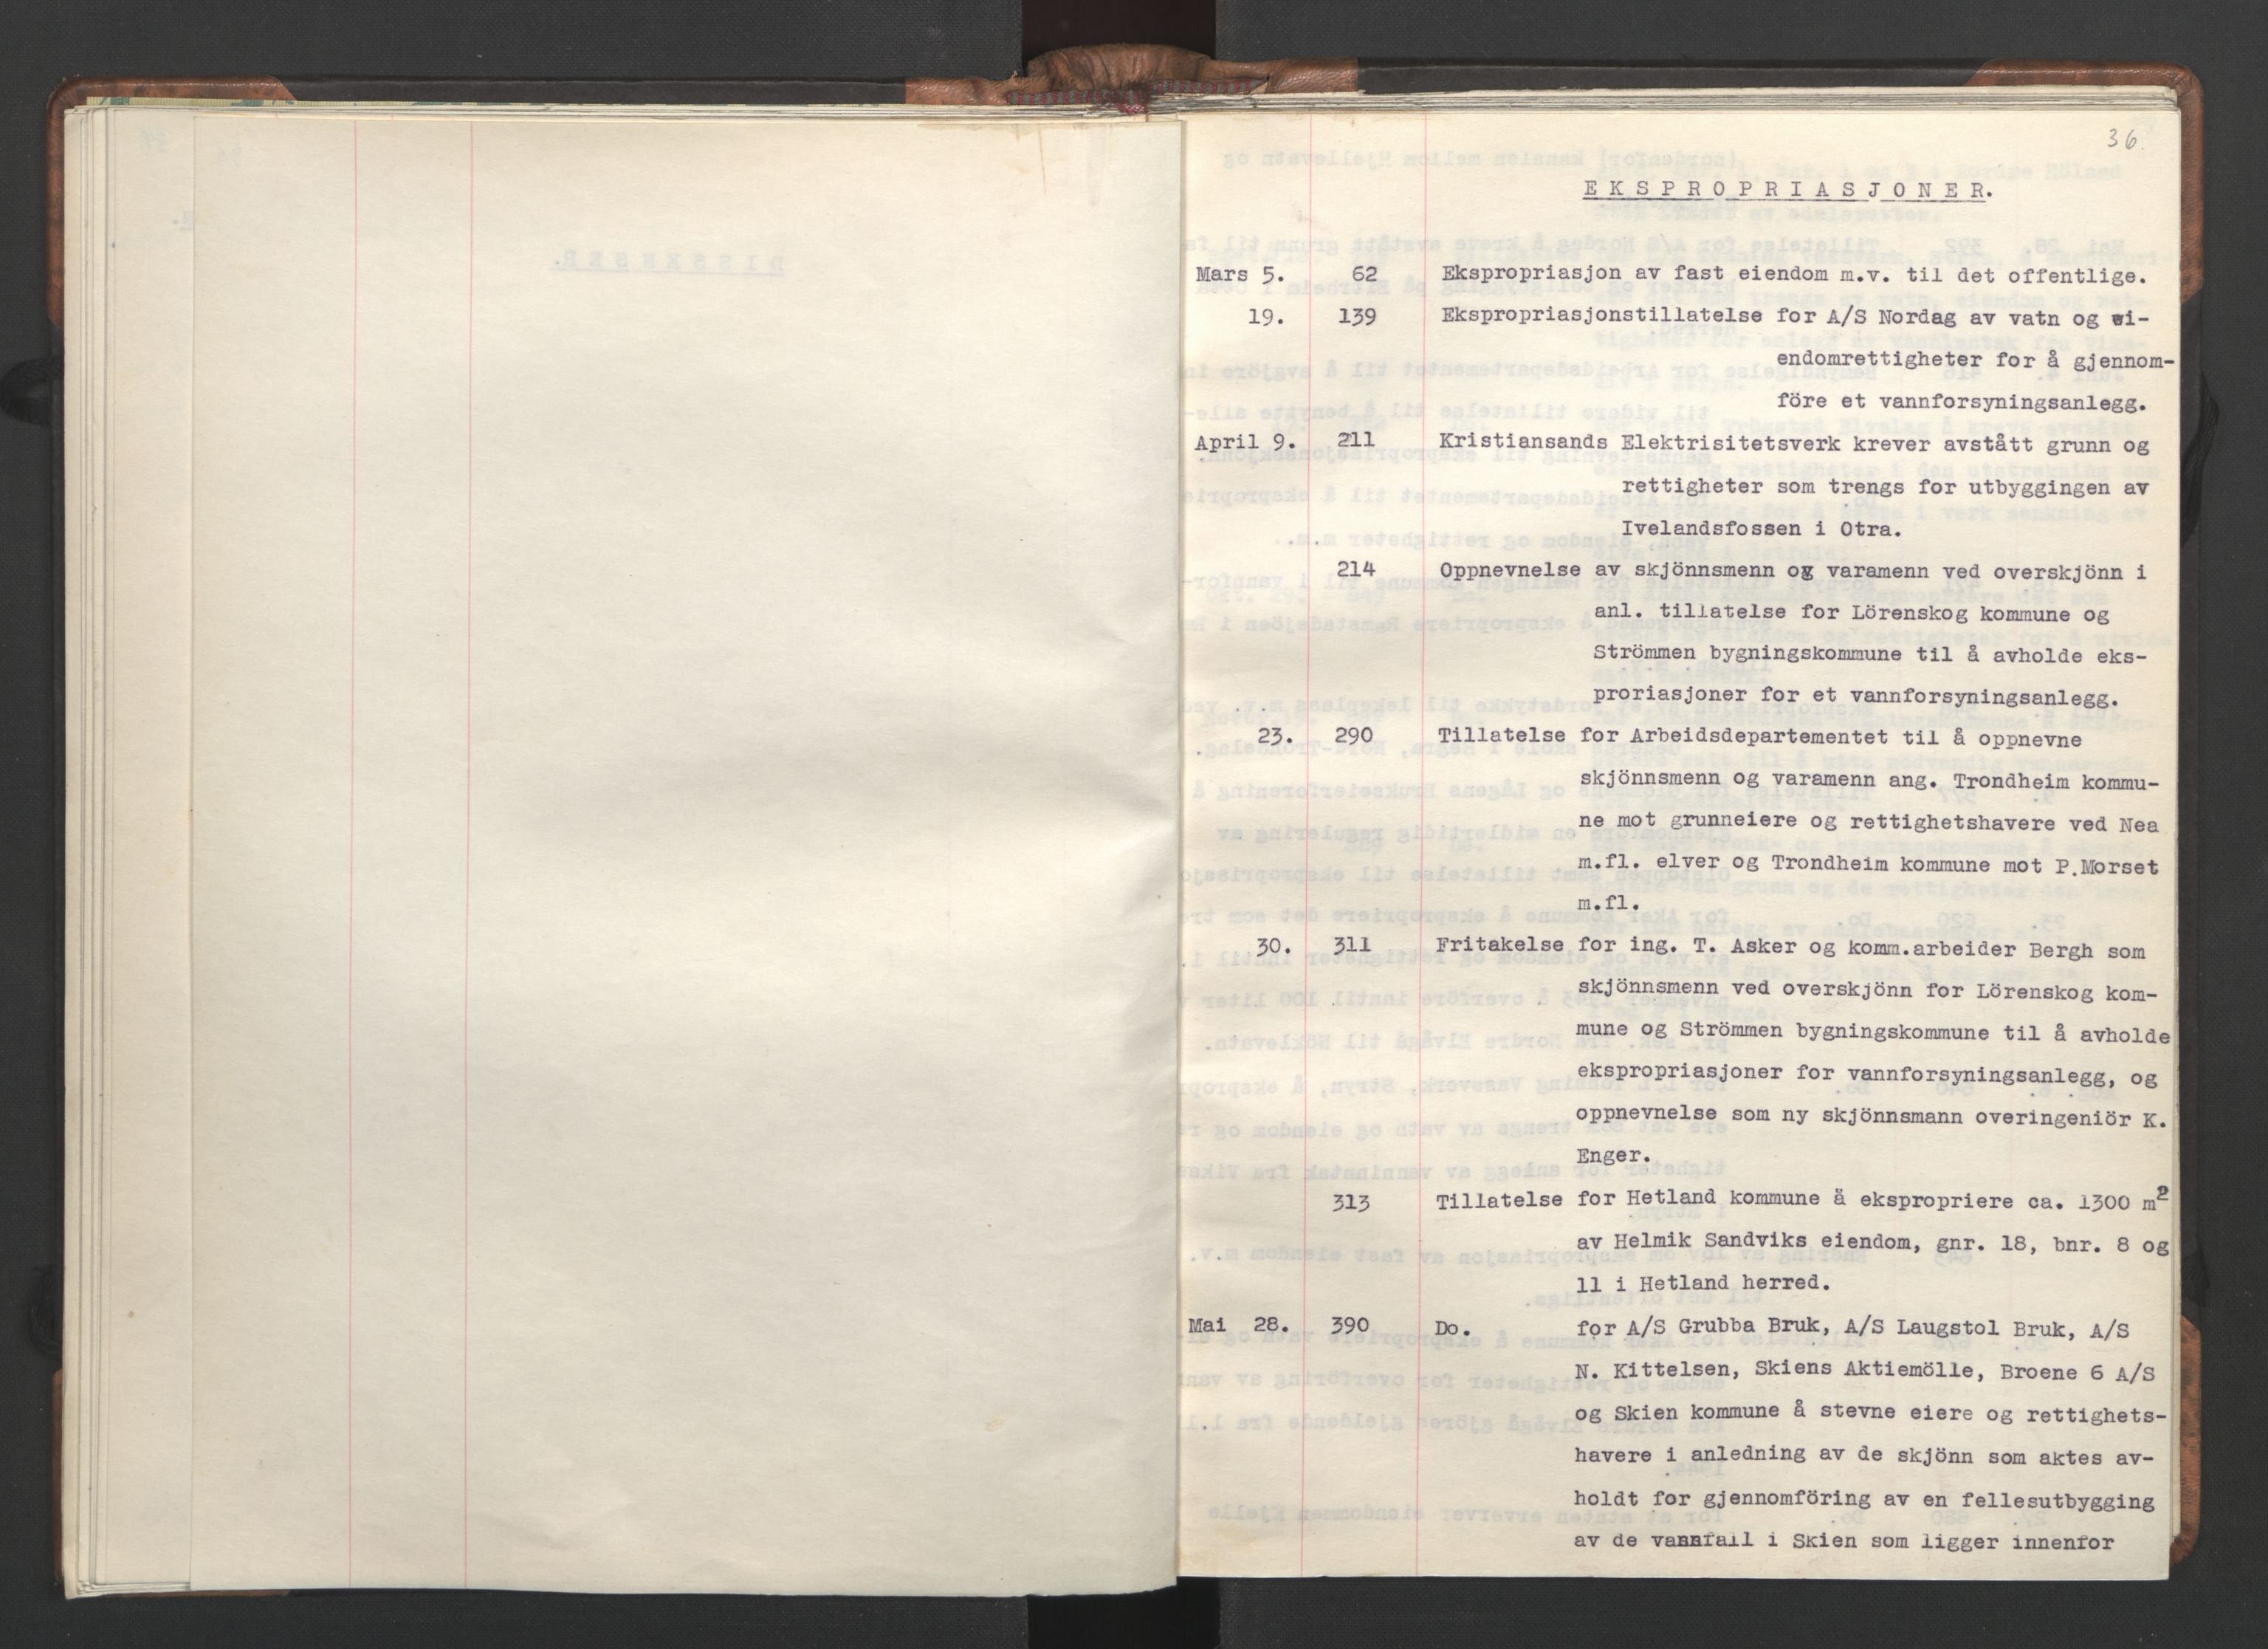 36.
EKSPROPRIASJONER.
Mars 5. 62 Ekspropriasjon av fast eiendom m.v. til det offentlige.
19. 139 Ekspropriasjonstillatelse for A/S Nordag av vatn og ei-
endomrettigheter for å gjennom-
före et vannforsyningsanlegg.
April 9. 211 Kristiansands Elektrisitetsverk krever avstått grunn og
rettigheter som trengs for utbyggingen av
Ivelandsfossen i Otra.
214 Oppnevnelse av skjönnsmenn og varamenn ved overskjönn i
anl. tillatelse for Lörenskog kommune og
Strömmen bygningskommune til å avholde eks-
proriasjoner for et vannforsyningsanlegg.
23. 290 Tillatelse for Arbeidsdepartementet til å oppnevne
skjönnsmenn og varamenn ang. Trondheim kommu-
ne mot grunneiere og rettighetshavere ved Nea
m.fl. elver og Trondheim kommune mot P.Morset
m.fl.
30. 311 Fritakelse for ing. T. Asker og komm.arbeider Bergh som
skjönnsmenn ved overskjönn for Lörenskog kom-
mune og Strömmen bygningskommune til å avholde
ekspropriasjoner for vannforsyningsanlegg, og
oppnevnelse som ny skjönnsmann overingeniör K.
Enger.
313 Tillatelse for Hetland kommune ä ekspropriere ca. 1300 m2
av Helmik Sandviks eiendom, gnr. 18, bnr. 8 og
11 i Hetland herred.
Mai 28. 390 Do. for A/S Grubba Bruk, A/S Laugstol Bruk, A/S
N. Kittelsen, Skiens Aktiemölle, Broene 6 A/S
og Skien kommune å stevne eiere og rettighets-
havere i anledning av de skjönn som aktes av-
holdt for gjennomföring av en fellesutbygging
av de vannfall i Skien som ligger innenfor